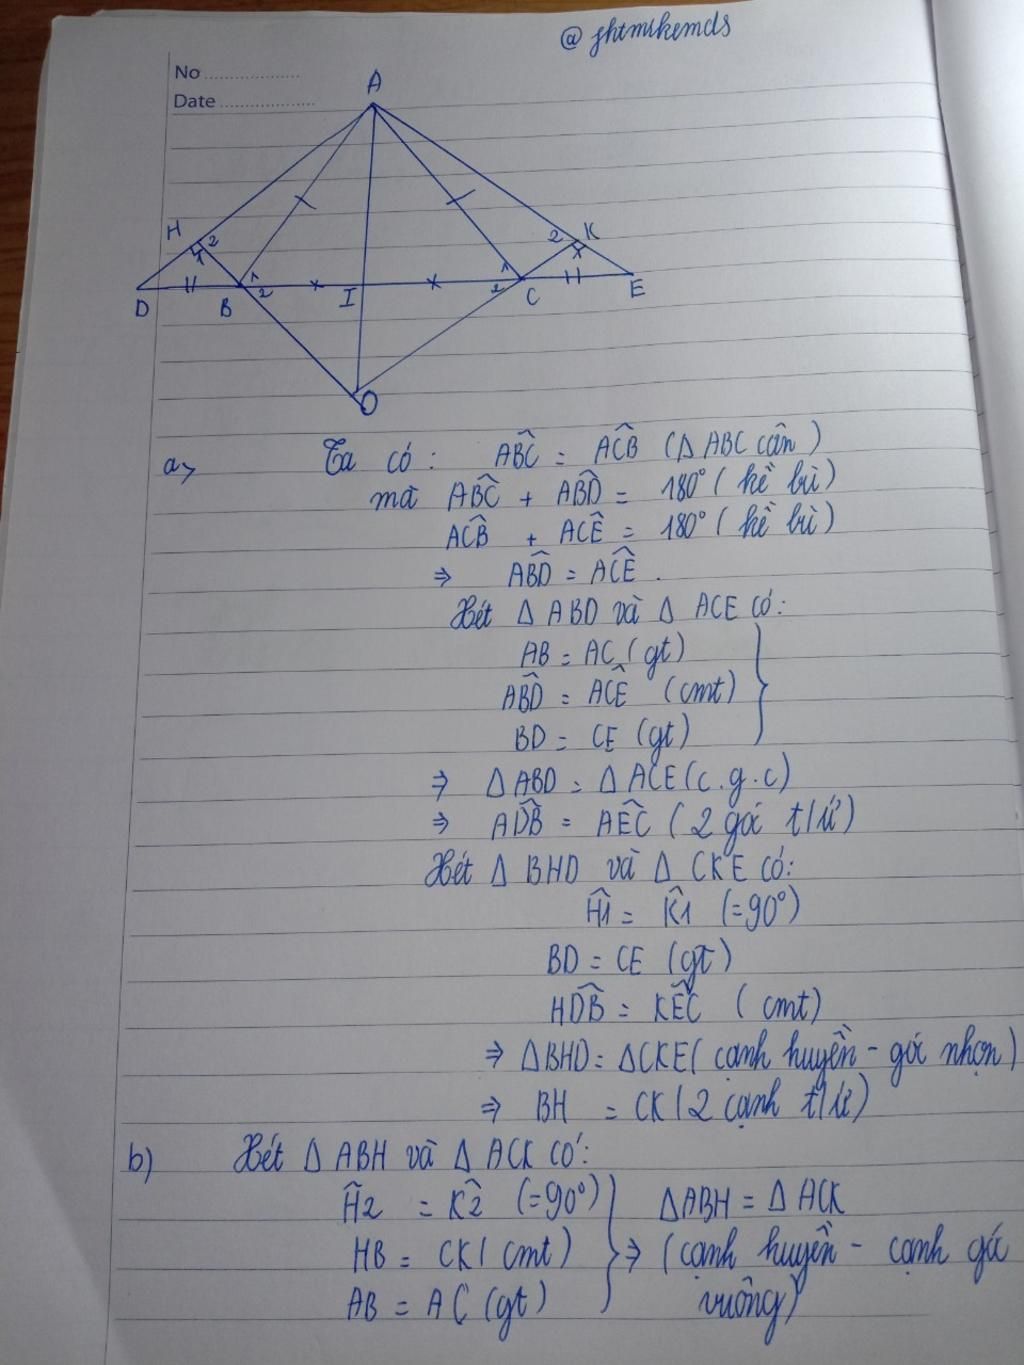 @ jhtmikemds
No
Date
A
H 2
1
2 K
D B 1 2 I 1 2 C E
O
a, Ta có : ABĈ = AĈB (Δ ABC cân)
mà ABĈ + ABD̂ = 180° ( kề bù)
AĈB + ACÊ = 180° ( kề bù)
⇒ ABD̂ = ACÊ .
Xét Δ ABD và Δ ACE có:
AB = AC (gt)
ABD̂ = ACÊ (cmt)
BD = CE (gt)
⇒ Δ ABD = Δ ACE (c.g.c)
⇒ AD̂B = AÊC ( 2 góc t/ứ)
Xét Δ BHD và Δ CKE có:
Ĥ1 = K̂1 (=90°)
BD = CE (gt)
HD̂B = KÊC ( cmt)
⇒ ΔBHD = ΔCKE ( cạnh huyền - góc nhọn)
⇒ BH = CK ( 2 cạnh t/ứ)
b) Xét Δ ABH và Δ ACK có:
Ĥ2 = K̂2 (=90°) ΔABH = Δ ACK
HB = CK ( cmt) ⇒ (cạnh huyền - cạnh góc
AB = AC (gt) vuông)